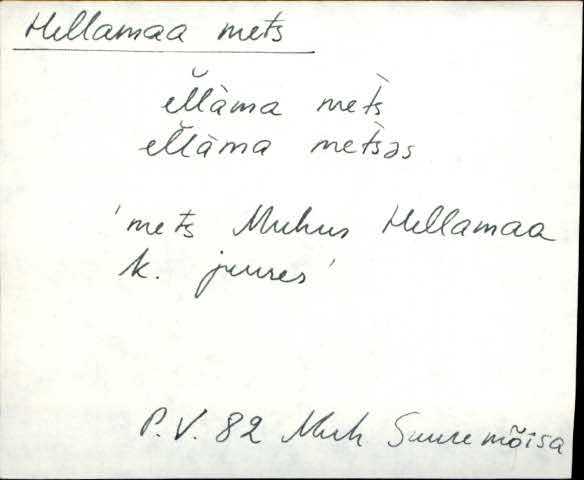 Hellamaa mets
ĕllàma mèts
ĕllàma mètsəs
'mets Muhus Hellamaa
k. juures'
P.V. 82 Muh Suuremõisa